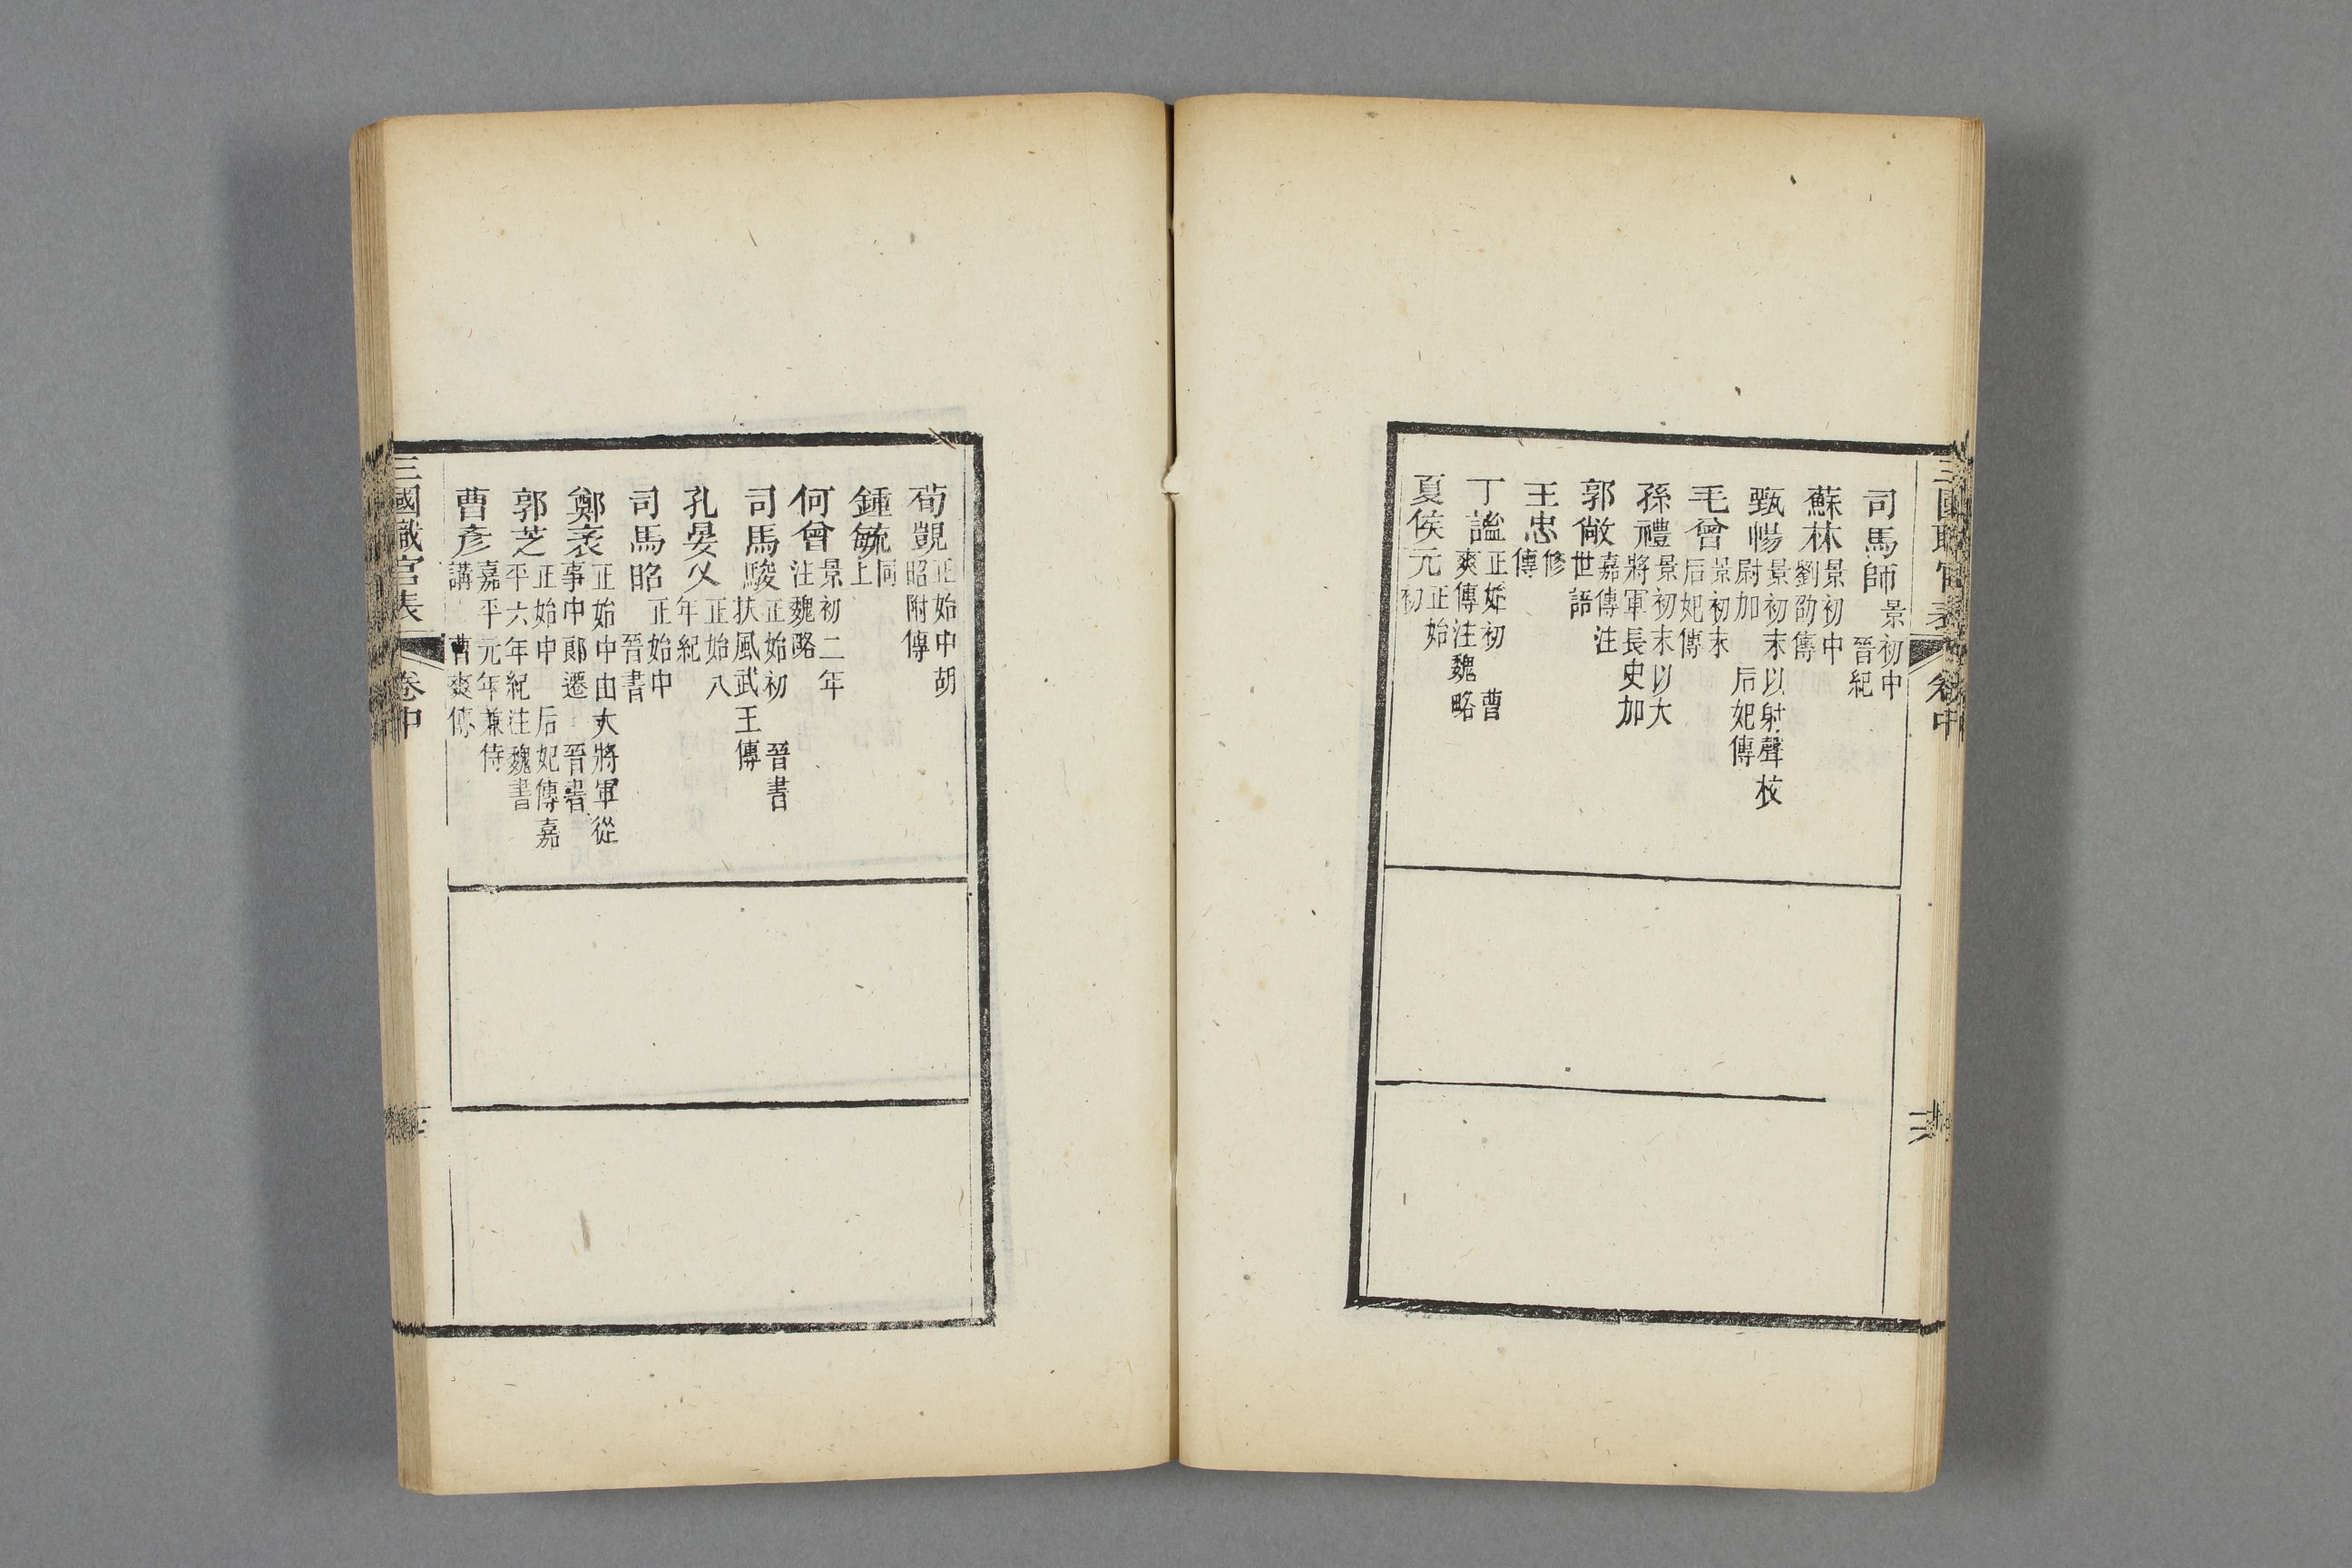 三國職官表 卷中
司馬師 景初中 晉紀
蘇林 景初中 劉劭傳
甄暢 景初末以射聲校尉加 后妃傳
毛曾 景初末 后妃傳
孫禮 景初末以大將軍長史加
郭敞 嘉傳注世語
王忠 修傳
丁謐 正始初 曹爽傳注魏略
夏侯元 正始初
荀顗 正始中 胡昭附傳
鍾毓 同上
何曾 景初二年 注魏略
司馬駿 正始初 晉書扶風武王傳
孔晏乂 正始八年紀
司馬昭 正始中 晉書
鄭袤 正始中由大將軍從事中郎遷 晉書
郭芝 正始中 后妃傳嘉平六年紀注魏書
曹彥 嘉平元年兼侍講 曹爽傳
三國職官表 卷中